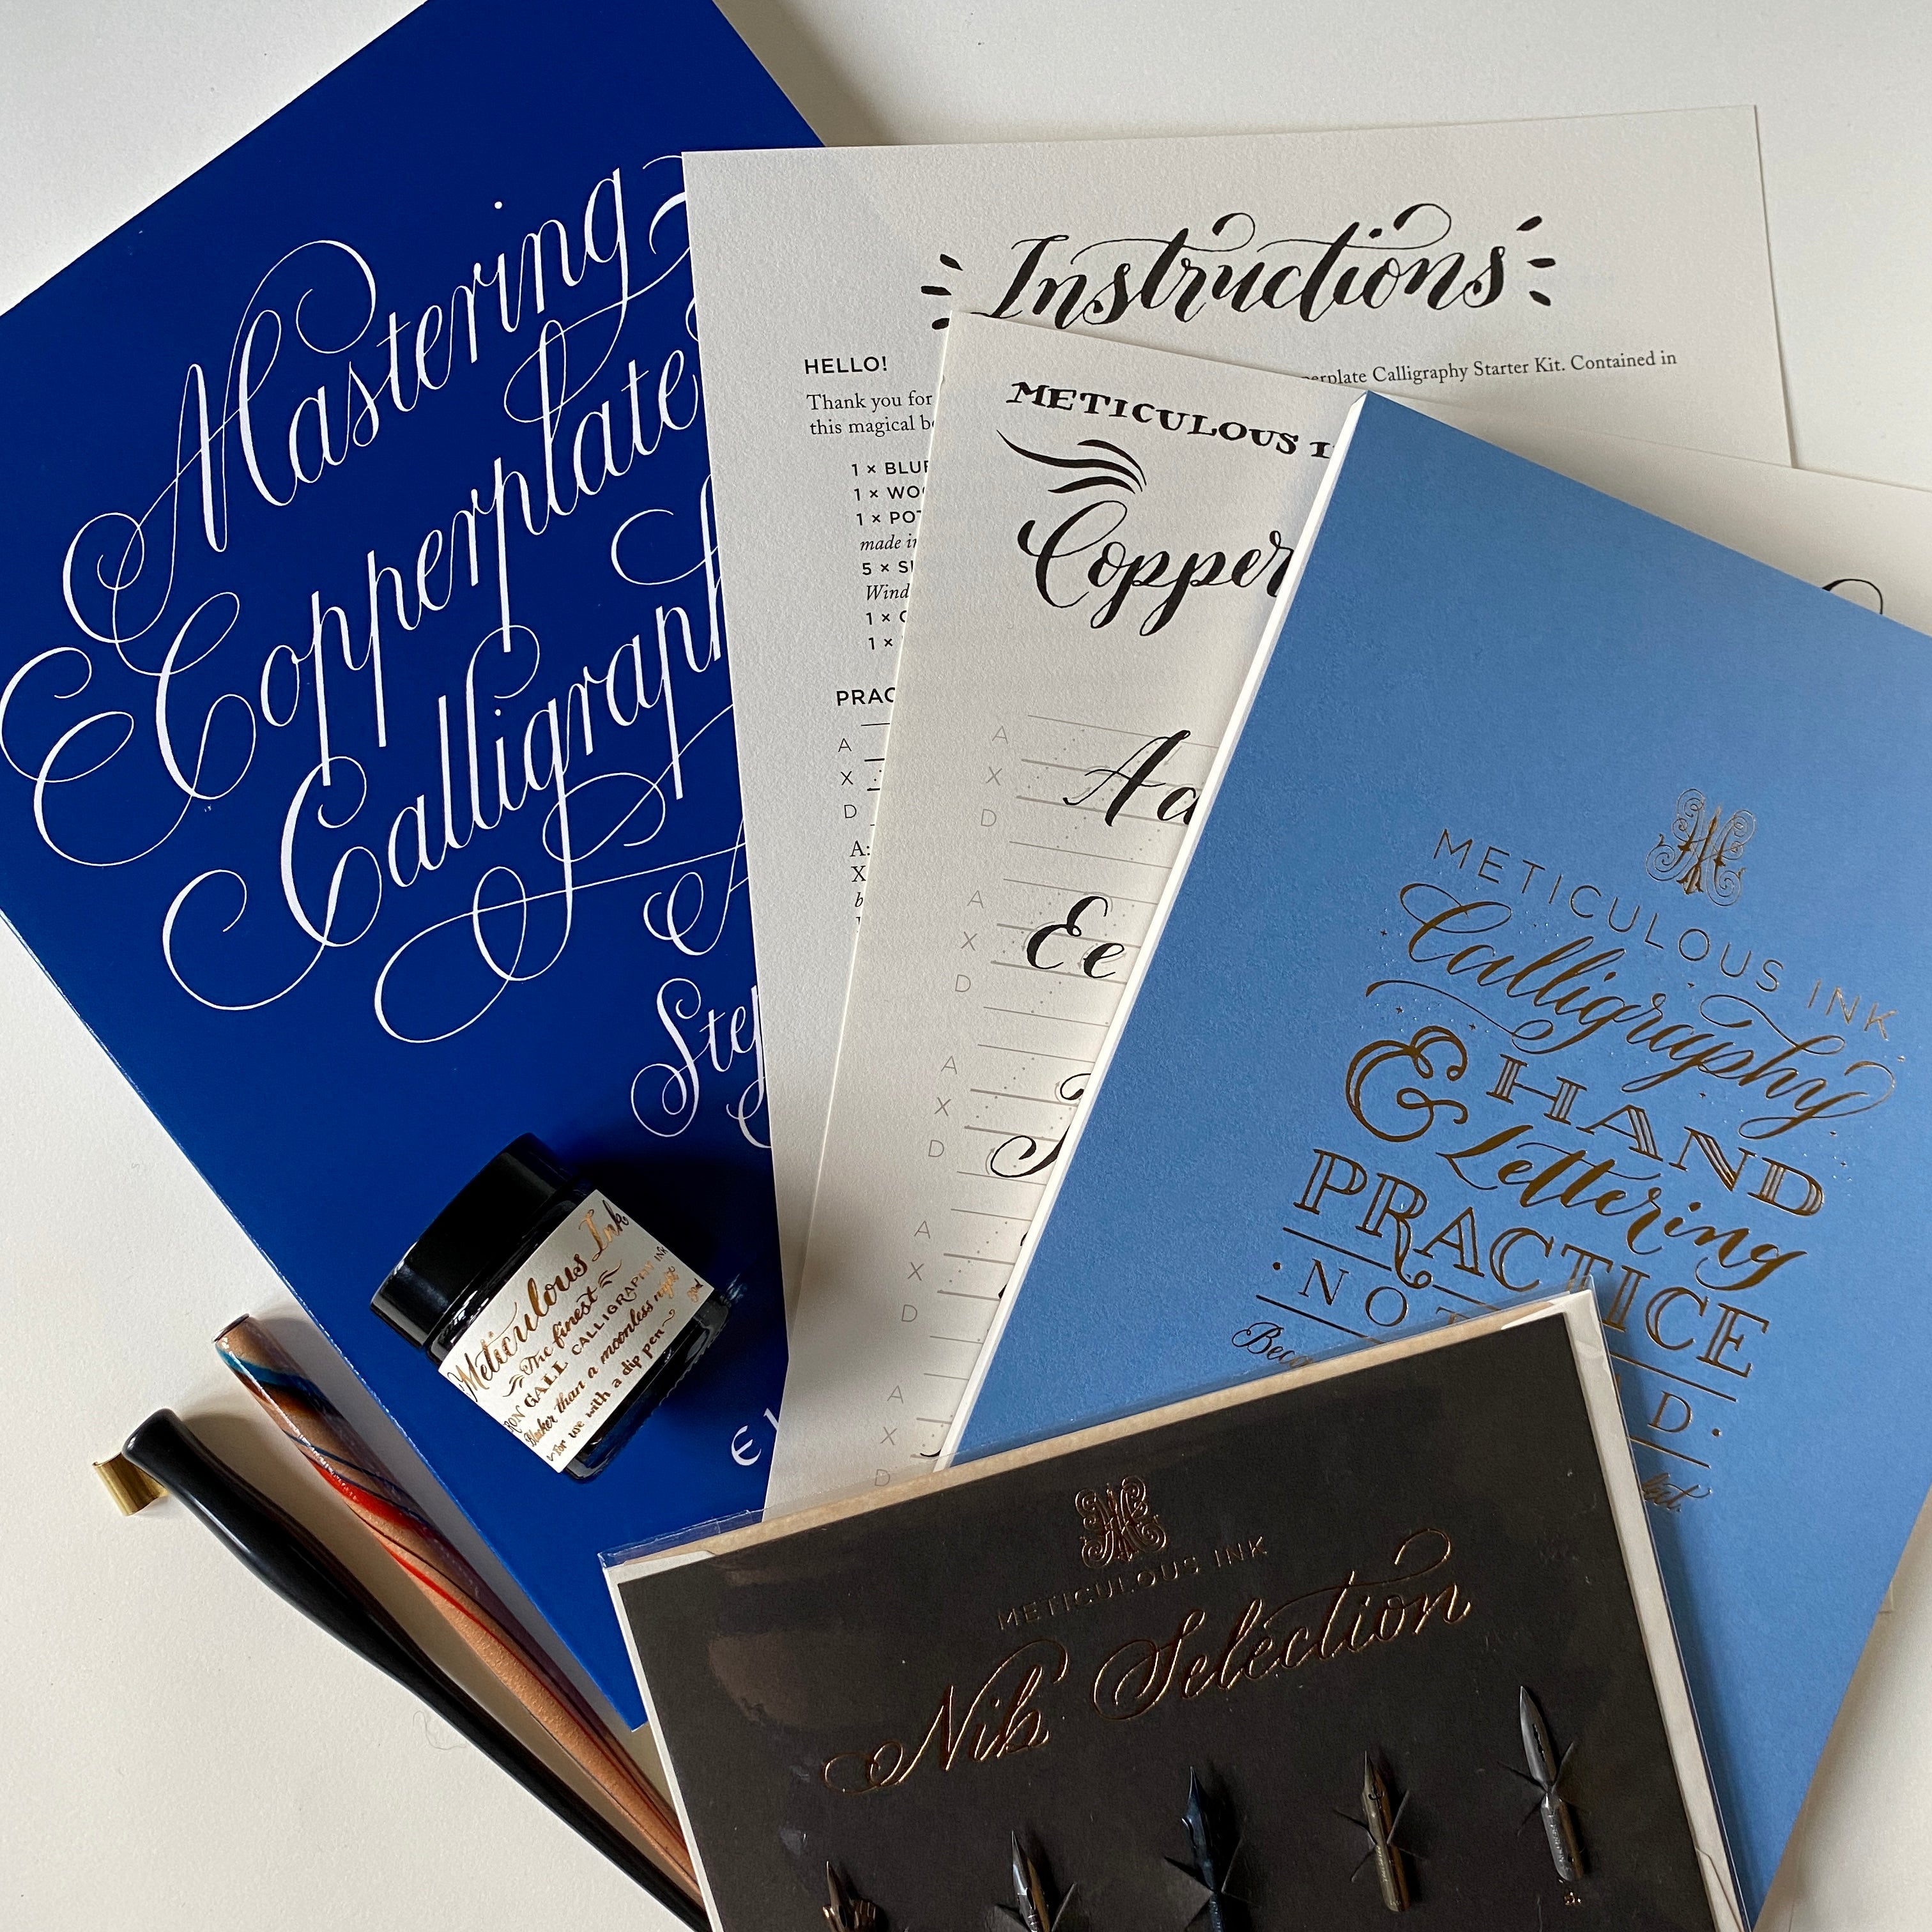 Mastering
Copperplate
Calligraph
A
Step
Instructions
HELLO!
Thank you for
perplate Calligraphy Starter Kit. Contained in
this magical b
1 × BLUE
1 × WO
1 × POT
made in
5 × S
Wind
1 ×
1 ×
PRAC
A
X
D
A:
X
METICULOUS I
Copper
A
X
D
Aa
A
X
D
Ee
A
X
D
A
X
D
A
X
D
METICULOUS INK
Calligraphy
& HAND
Lettering
PRACTICE
Meticulous Ink
The finest
IRON GALL CALLIGRAPHY INK
Blacker than a moonless night
for use with a dip pen
50ml
METICULOUS INK
Nib Selection